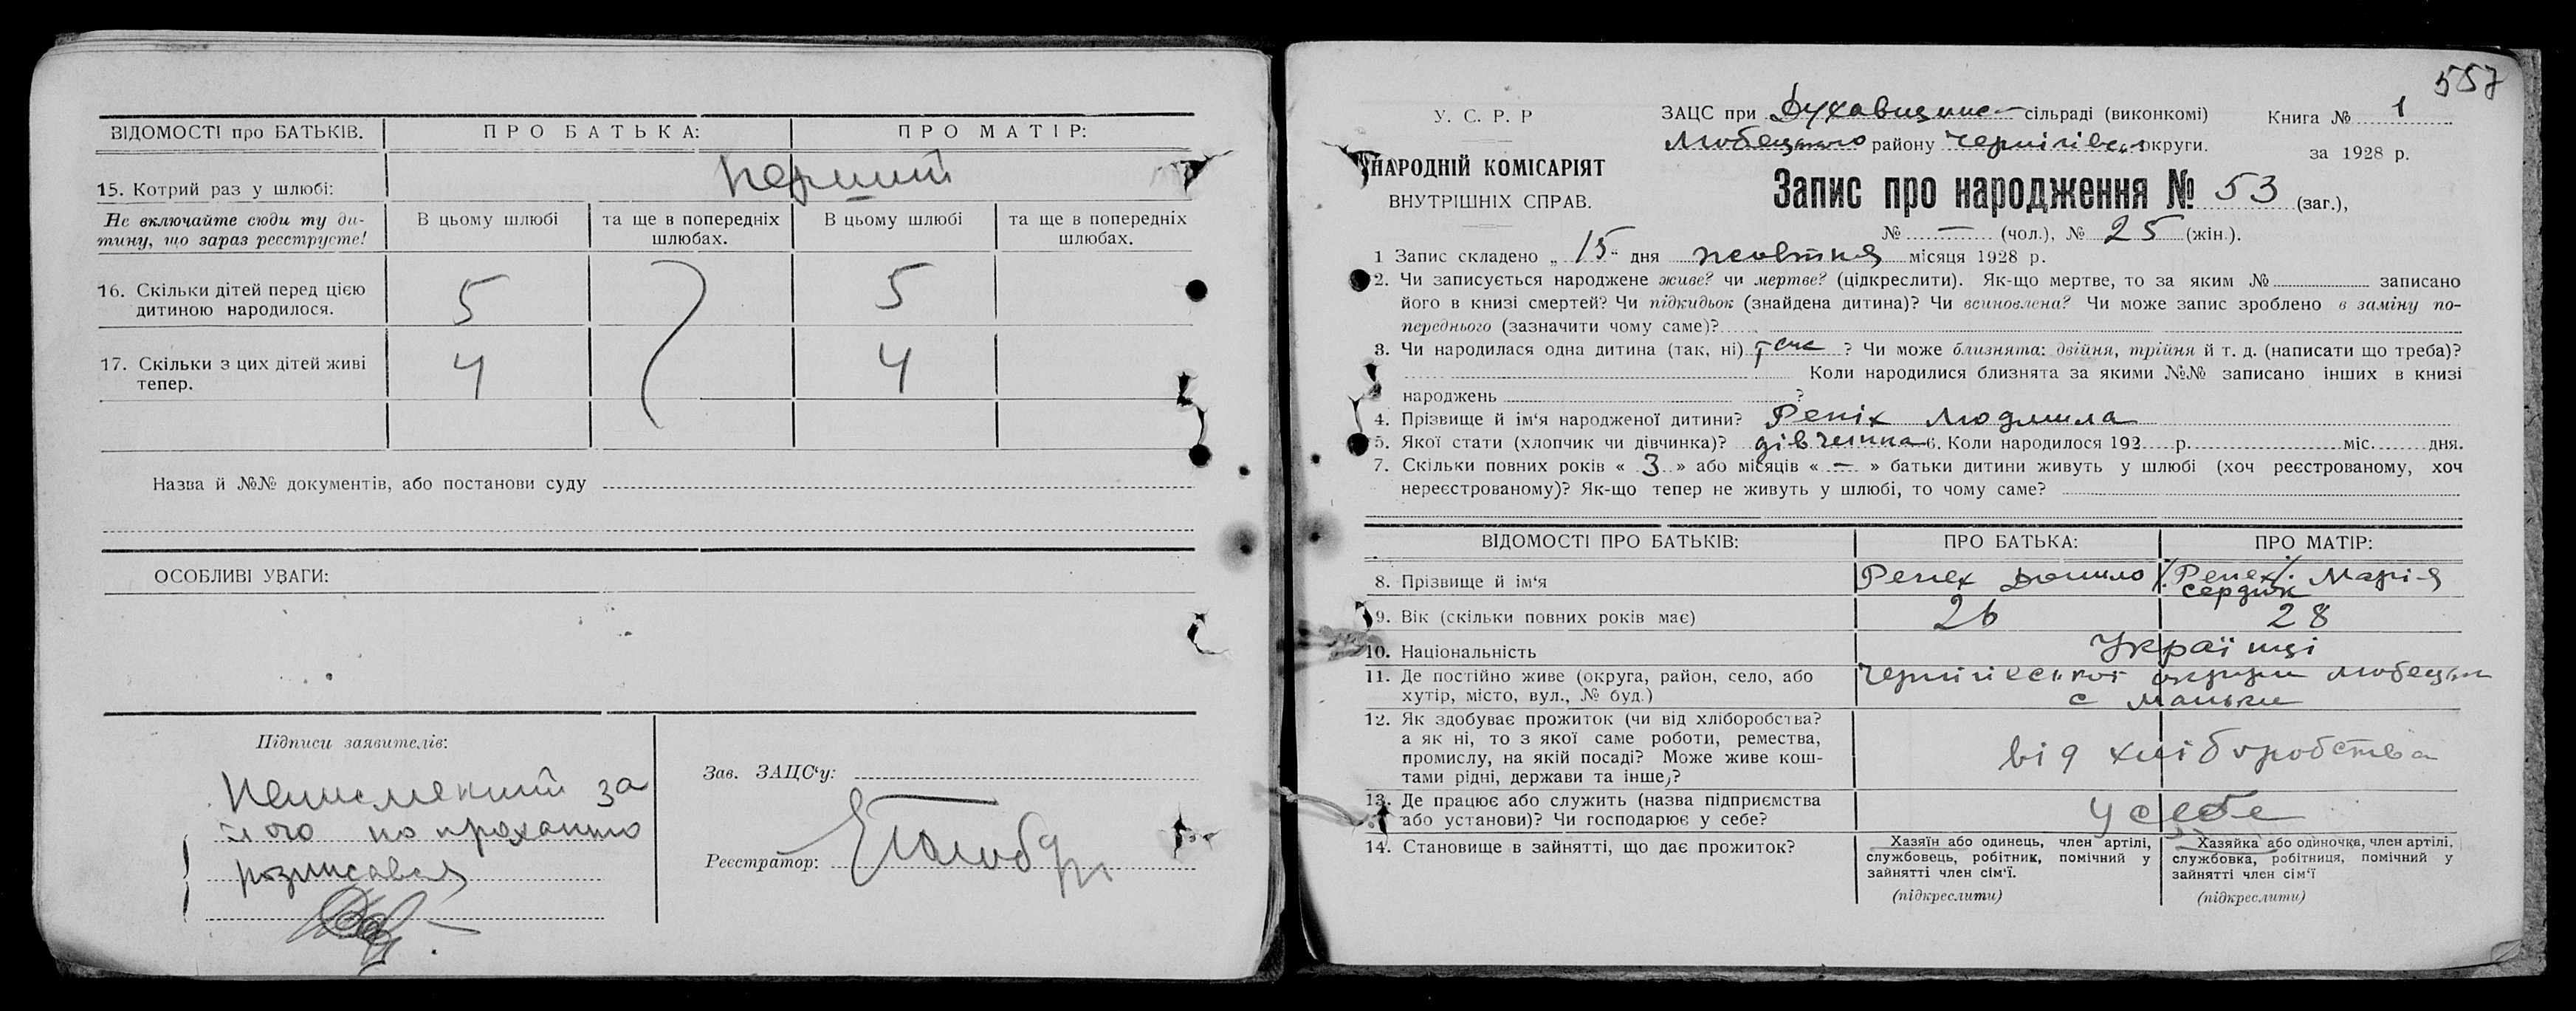 ВІДОМОСТІ про БАТЬКІВ. ПРО БАТЬКА: ПРО МАТІР:
15. Котрий раз у шлюбі: перший
Не включайте сюди ту ди-
тину, що зараз реєструєте!
В цьому шлюбі та ще в попередніх шлюбах. В цьому шлюбі та ще в попередніх шлюбах.
16. Скільки дітей перед цією 5 5
дитиною народилося.
17. Скільки з цих дітей живі 4 4
тепер.
Назва й №№ документів, або постанови суду
ОСОБЛИВІ УВАГИ:
Підписи заявителів:
Неписменний за
його по проханню
розписався
Зав. ЗАЦС‘у:
Реєстратор:
557
У. С. Р. Р
НАРОДНІЙ КОМІСАРІЯТ
ВНУТРІШНІХ СПРАВ.
ЗАЦС при Духавщинс- сільраді (виконкомі)
Любецького району Чернігівськ округи.
Книга № 1
за 1928 р.
Запис про народження № 53 (заг.),
№ — (чол.), № 25 (жін.).
1 Запис складено „ 15 “ дня жовтня місяця 1928 р.
2. Чи записується народжене живе? чи мертве? (цідкреслити). Як-що мертве, то за яким № записано
його в книзі смертей? Чи підкидьок (знайдена дитина)? Чи всиновлена? Чи може запис зроблено в заміну по-
переднього (зазначити чому саме)?
3. Чи народилася одна дитина (так, ні) так ? Чи може близнята: двійня, трійня й т. д. (написати що треба)?
Коли народилися близнята за якими №№ записано інших в книзі
народжень ?
4. Прізвище й ім‘я народженої дитини? Репіх Людмила
5. Якої стати (хлопчик чи дівчинка)? дівчинка 6. Коли народилося 192 р. міс. дня.
7. Скільки повних років « 3 » або місяців « — » батьки дитини живуть у шлюбі (хоч реєстрованому, хоч
нереєстрованому)? Як-що тепер не живуть у шлюбі, то чому саме?
ВІДОМОСТІ ПРО БАТЬКІВ: ПРО БАТЬКА: ПРО МАТІР:
8. Прізвище й ім‘я Репех Данило /Репех/. Марія
Сердюк
9. Вік (скільки повних років має) 26 28
10. Національність Українці
11. Де постійно живе (округа, район, село, або Чернігівської округи Любецьк
хутір, місто, вул., № буд.) с Маньки
12. Як здобуває прожиток (чи від хліборобства?
а як ні, то з якої саме роботи, ремества,
промислу, на якій посаді? Може живе кош-
тами рідні, держави та інше,?
від хліборобства
13. Де працює або служить (назва підприємства
або установи)? Чи господарює у себе?
у себе
14. Становище в зайнятті, що дає прожиток?
Хазяїн або одинець, член артілі,
службовець, робітник, помічний у
зайнятті член сім‘ї.
(підкреслити)
Хазяйка або одиночка, член артілі,
службовка, робітниця, помічний у
зайнятті член сім‘ї
(підкреслити)